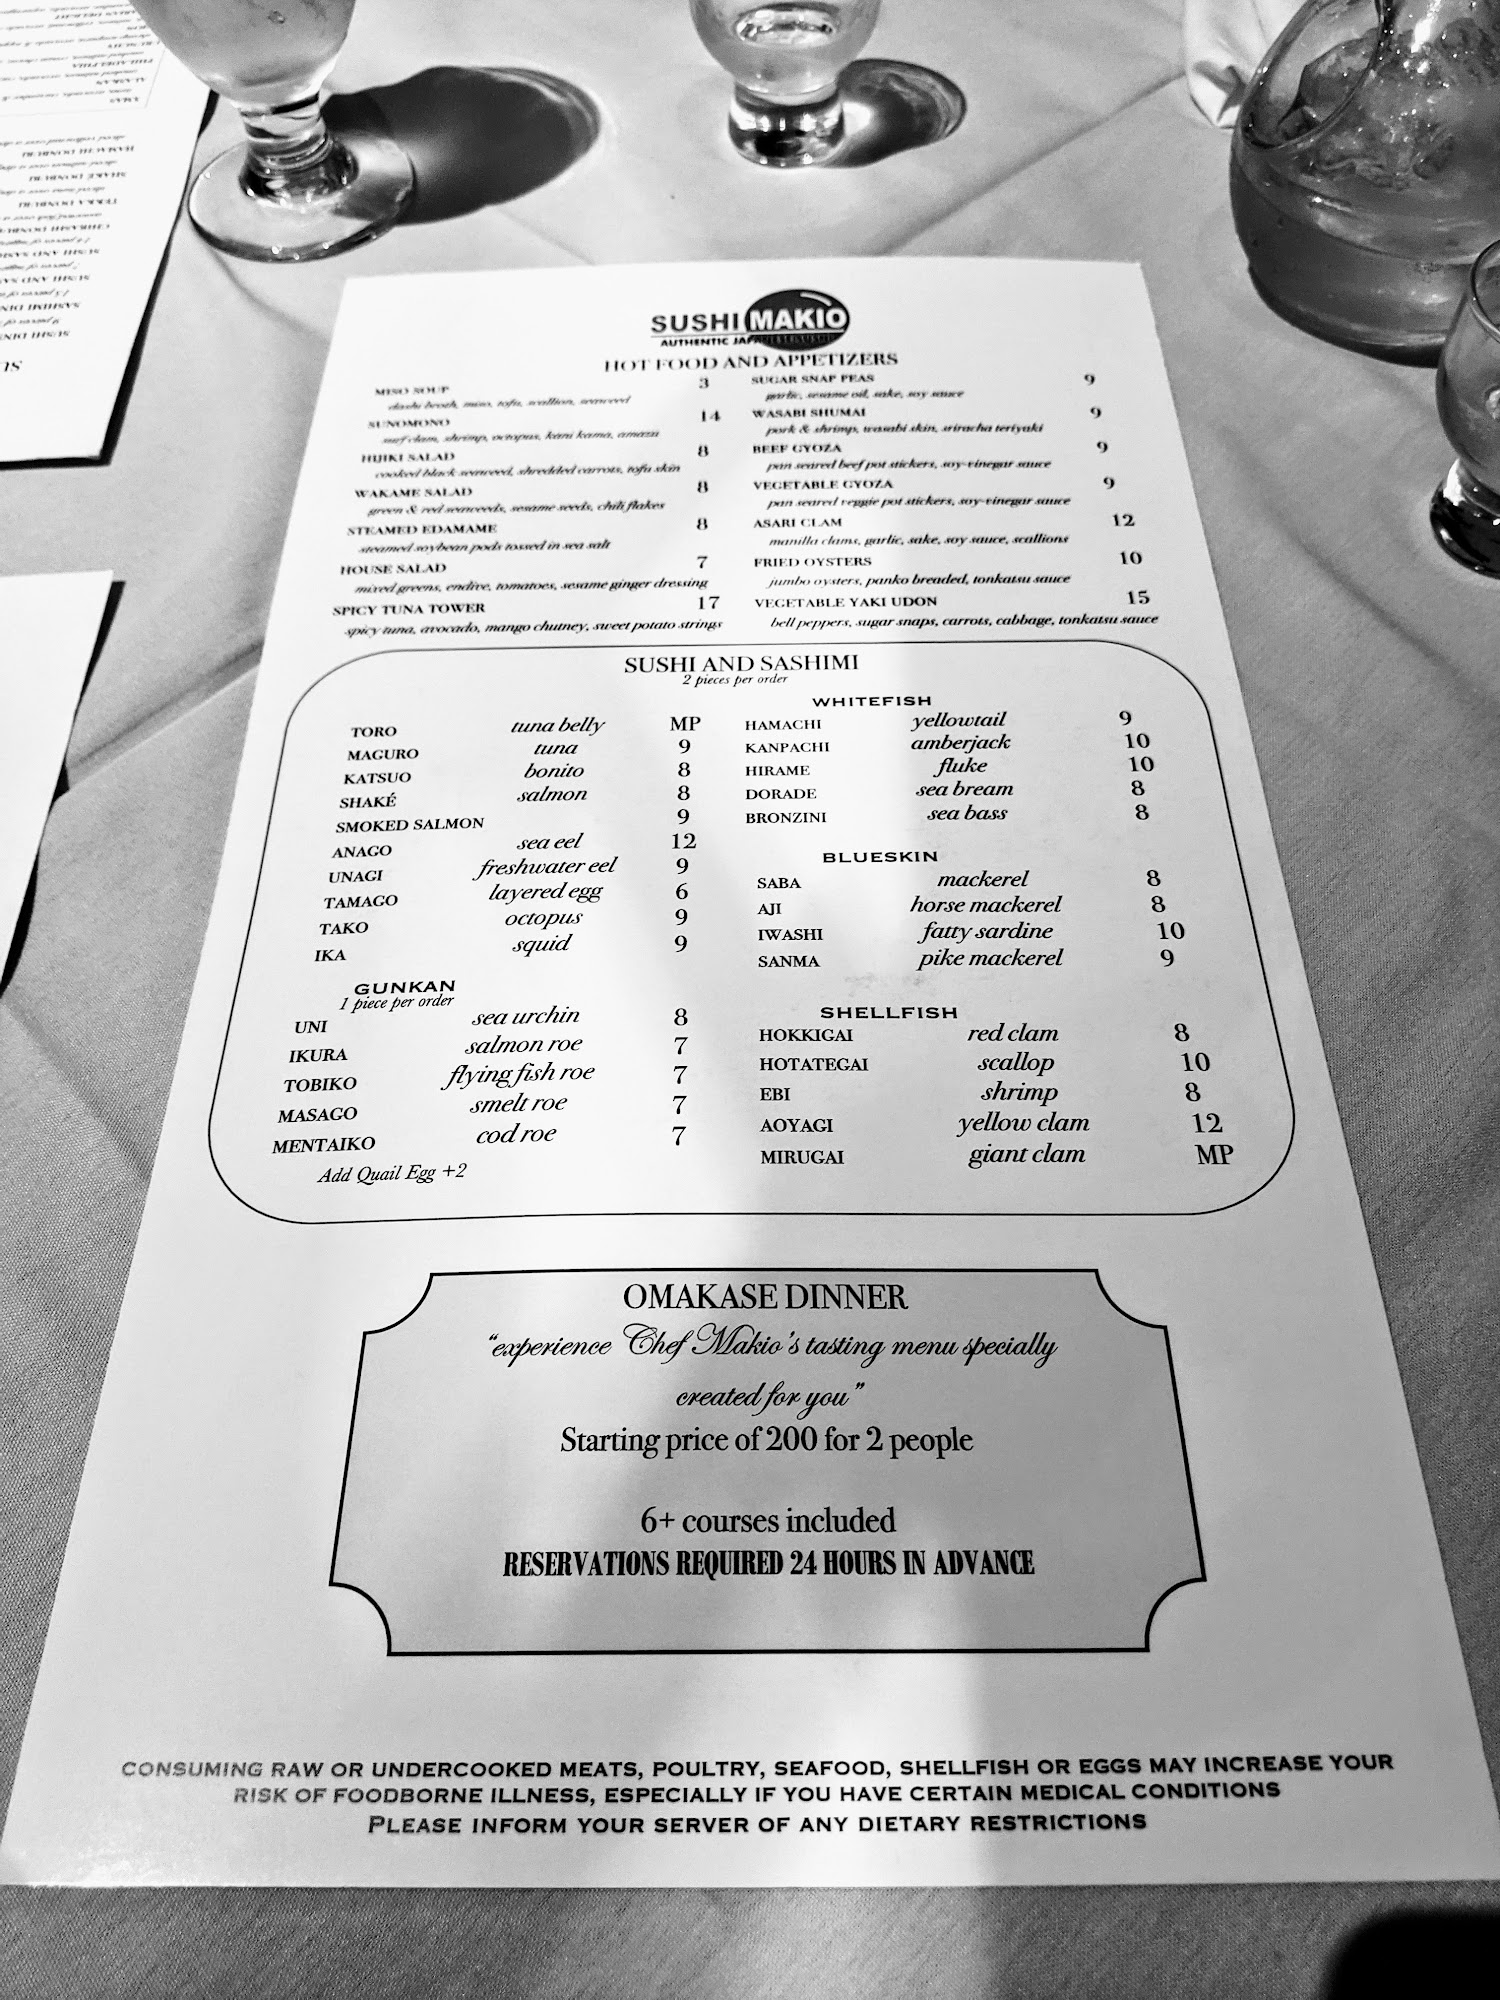 SUSHI MAKIO
AUTHENTIC
HOT FOOD AND APPETIZERS
MISO SOUP 3
dashi broth, miso, tofu, scallion, seaweed
SUNOMONO 14
surf clam, shrimp, octopus, kani kama, amazu
HIJIKI SALAD 8
cooked black seaweed, shredded carrots, tofu skin
WAKAME SALAD 8
green & red seaweeds, sesame seeds, chili flakes
STEAMED EDAMAME 8
steamed soybean pods tossed in sea salt
HOUSE SALAD 7
mixed greens, endive, tomatoes, sesame ginger dressing
SPICY TUNA TOWER 17
spicy tuna, avocado, mango chutney, sweet potato strings
SUGAR SNAP PEAS 9
garlic, sesame oil, sake, soy sauce
WASABI SHUMAI 9
pork & shrimp, wasabi skin, sriracha teriyaki
BEEF GYOZA 9
pan seared beef pot stickers, soy-vinegar sauce
VEGETABLE GYOZA 9
pan seared veggie pot stickers, soy-vinegar sauce
ASARI CLAM 12
manilla clams, garlic, sake, soy sauce, scallions
FRIED OYSTERS 10
jumbo oysters, panko breaded, tonkatsu sauce
VEGETABLE YAKI UDON 15
bell peppers, sugar snaps, carrots, cabbage, tonkatsu sauce
SUSHI AND SASHIMI
2 pieces per order
TORO tuna belly MP
MAGURO tuna 9
KATSUO bonito 8
SHAKÉ salmon 8
SMOKED SALMON 9
ANAGO sea eel 12
UNAGI freshwater eel 9
TAMAGO layered egg 6
TAKO octopus 9
IKA squid 9
GUNKAN
1 piece per order
UNI sea urchin 8
IKURA salmon roe 7
TOBIKO flying fish roe 7
MASAGO smelt roe 7
MENTAIKO cod roe 7
Add Quail Egg +2
WHITEFISH
HAMACHI yellowtail 9
KANPACHI amberjack 10
HIRAME fluke 10
DORADE sea bream 8
BRONZINI sea bass 8
BLUESKIN
SABA mackerel 8
AJI horse mackerel 8
IWASHI fatty sardine 10
SANMA pike mackerel 9
SHELLFISH
HOKKIGAI red clam 8
HOTATEGAI scallop 10
EBI shrimp 8
AOYAGI yellow clam 12
MIRUGAI giant clam MP
OMAKASE DINNER
“experience Chef Makio's tasting menu specially
created for you”
Starting price of 200 for 2 people
6+ courses included
RESERVATIONS REQUIRED 24 HOURS IN ADVANCE
CONSUMING RAW OR UNDERCOOKED MEATS, POULTRY, SEAFOOD, SHELLFISH OR EGGS MAY INCREASE YOUR
RISK OF FOODBORNE ILLNESS, ESPECIALLY IF YOU HAVE CERTAIN MEDICAL CONDITIONS
PLEASE INFORM YOUR SERVER OF ANY DIETARY RESTRICTIONS